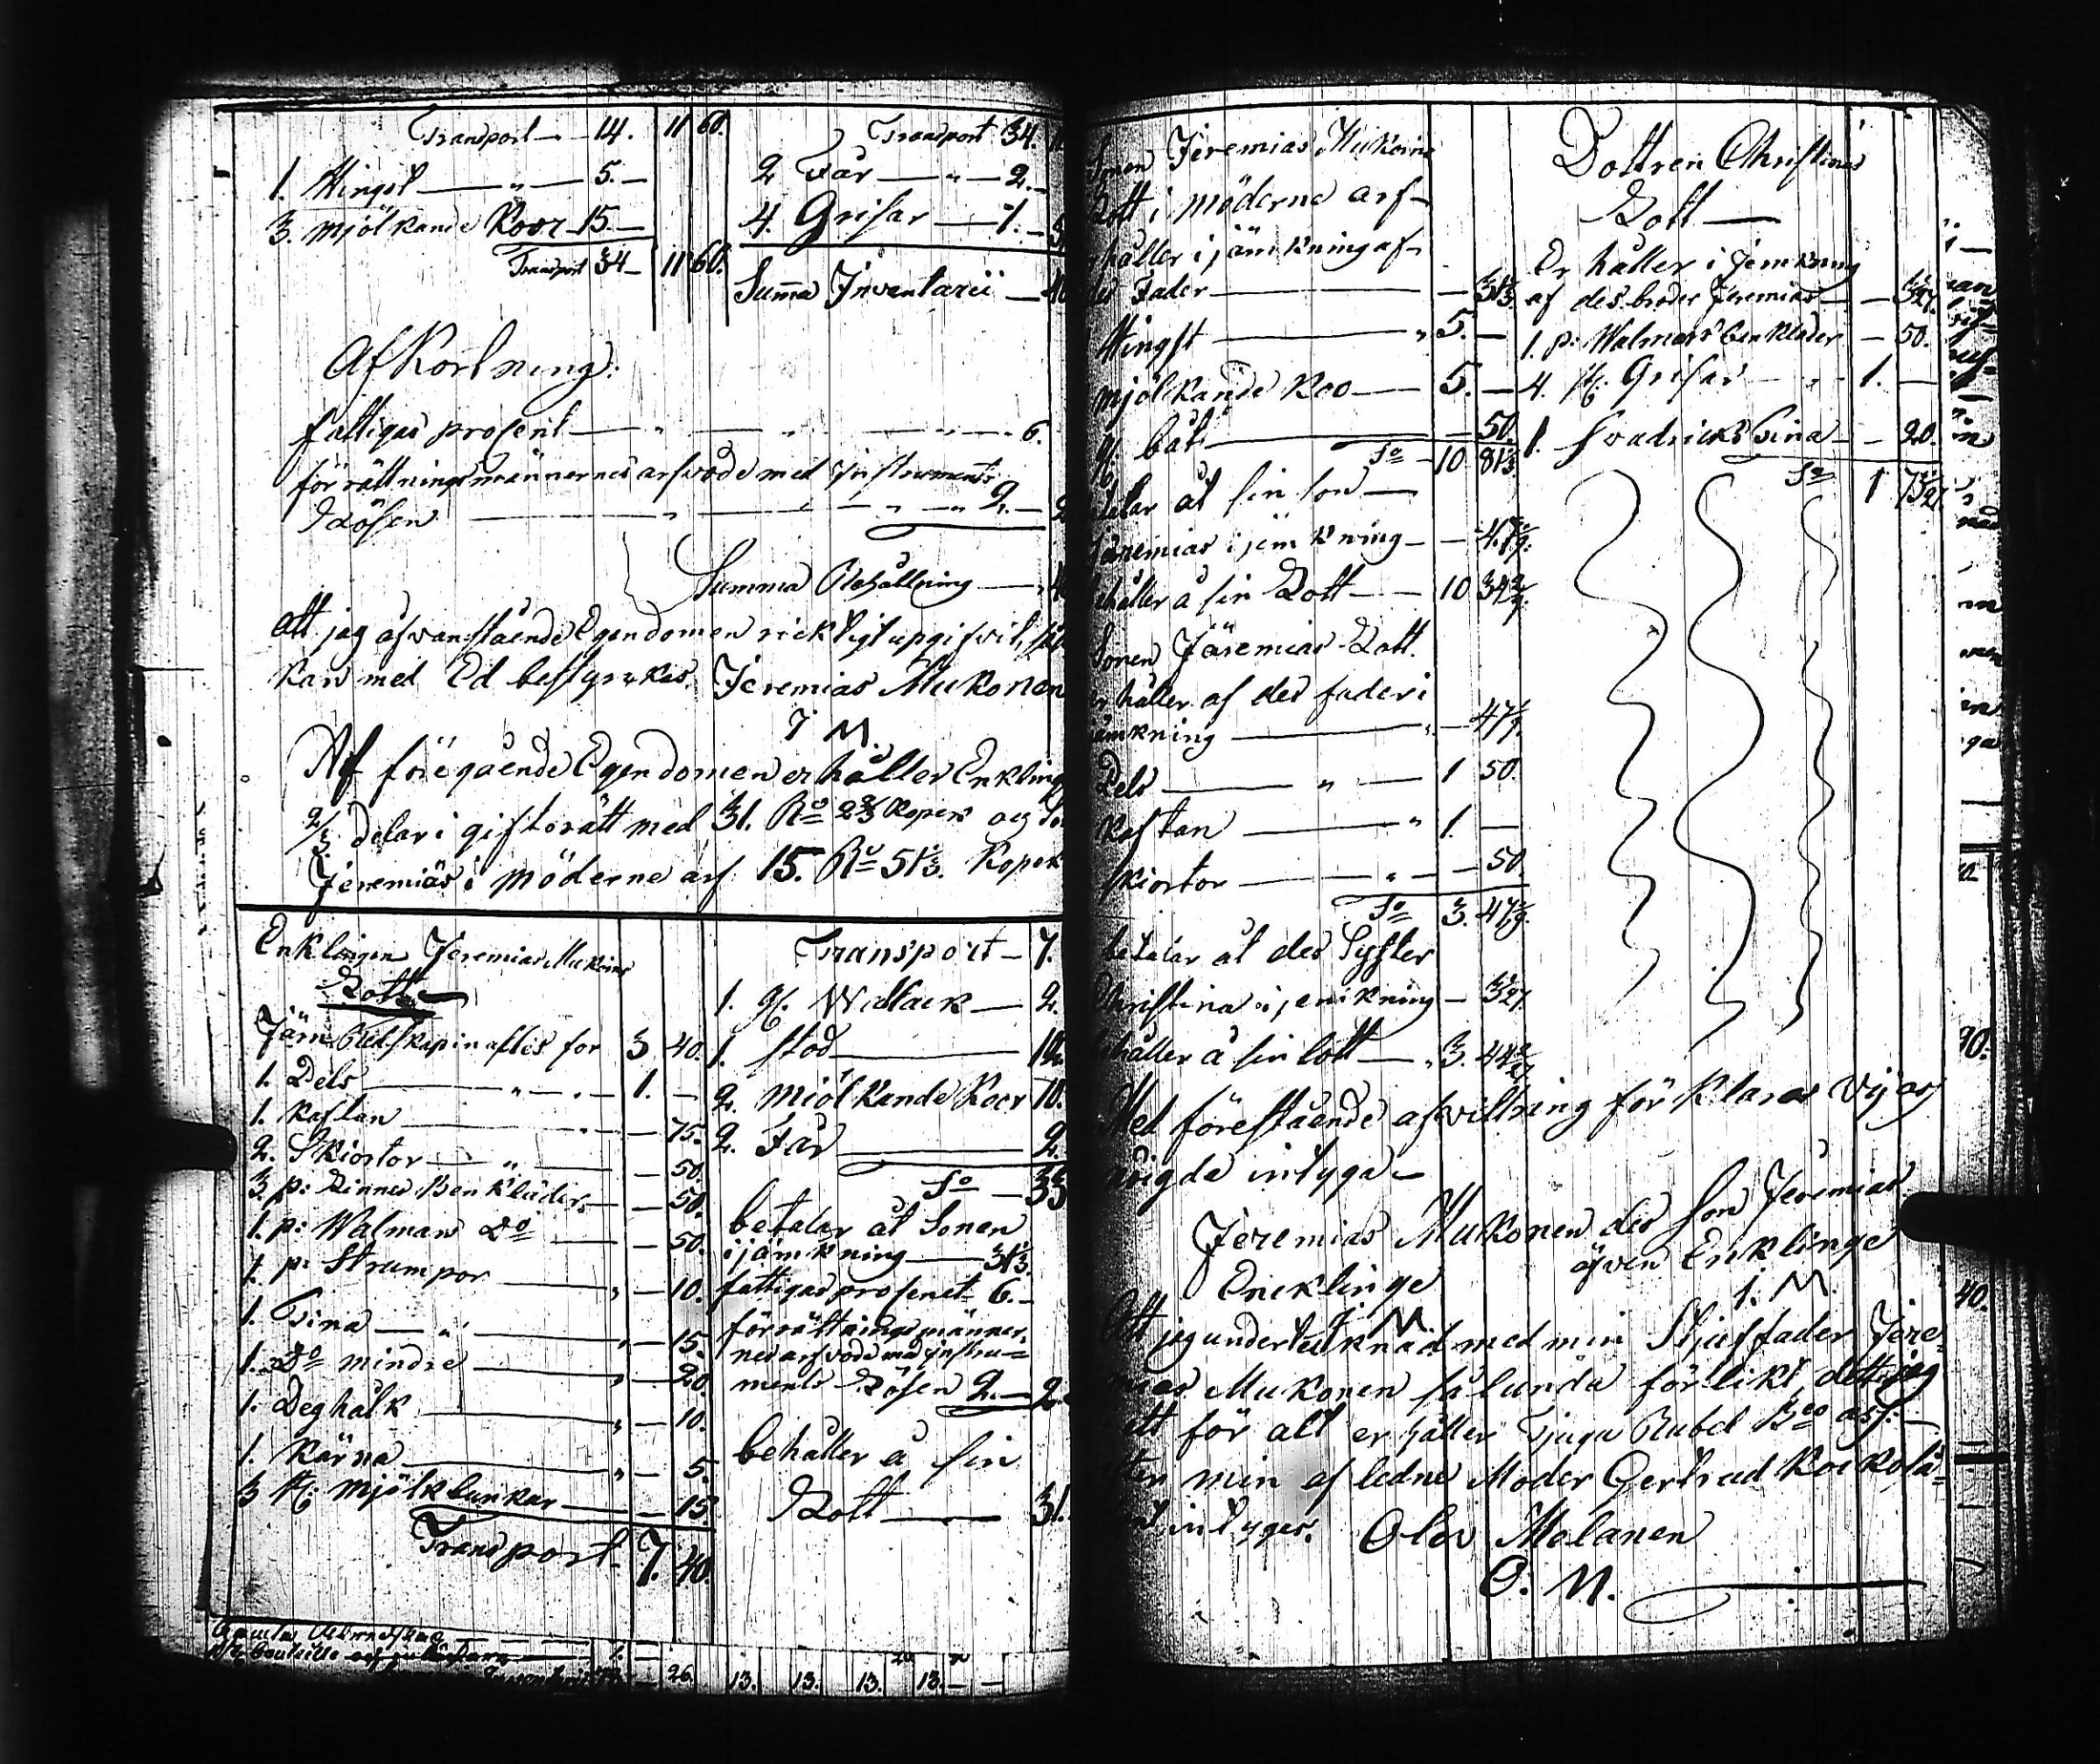 Transport 14. 11 60.
1. Hingst 5.
3. mjölkande Koor 15.
Transport 34 11 60.
Transport 34.
2 Får 2.
4. Grisar 1.
Summa Inventarii
Afkortning:
fattigas prosent 6.
förrättningsmännernes arfvode med
Lösen 2.
Summa Behållning
att jag åfvanstående Egendomen ricktigt upgifvit,
kan med Ed bestyrkas. Jeremias Mukonen
J M.
Af föregående Egendomen erhåller Enkling
2/3 delar i giftorätt med 31. Ro 2 2/3 Kopek och
Jeremias i möderne arf 15. Ro 51 1/3. Kopek
Enklingen Jeremias Mukoins
Lott
Järn Redskapin for 3 40.
1. Dels 1.
1. Kaftan 75.
2. Skiortor 50.
3. p: Linnes Benkläder 50.
1. p: Walmans Do 50.
1. p: Strumpor 10.
1. Tina 15.
1. Do mindre 20.
1. Deghålk 10.
1. Kärna 5.
3 st: mjölkbunkar 15.
Transport 7. 40.
Transport 7.
1. Wallack 2.
1. stod 12
2. Miölkande Koor 10.
2. Får 2.
So 33
betalar åt Sonen
i jämkning 31 1/3.
fattigas prosent 6.
förrättningsmänner-
nes arfvode med Instru-
ments Lösen 2. 2.
behåller å sin
Lott 31.
26. 13. 13. 13. 13.
Sonen Jeremias Mukoins
Lott i möderne arf
håller i jämkning af
des Fader 31 1/3
Hingst 5.
mjölkande Koo 5.
båt 50.
So 10 81 1/3
betalar åt sin son
Jeremias i jemkning 47 1/9.
behåller å sin Lott 10 34 2/9.
Sonen Järemias Lott.
erhåller af des fader i
jämkning 47 1/9.
Dels 1 50.
Kaftan 1.
skiortor 50.
So 3. 47 1/9.
betalar åt des Syster
Christina i jemkning 3 1/27
behåller å sin lott 3. 44 2/27
Dottren Christinas
Lott
Er håller i Jemkning
af des broder Jeremias 3 1/27.
1. p: Walmars benkläder 50.
4. st: Grisar 1.
1. Tina 20.
So 1 73 1/27
Med förestående afvittring förklarar Vij oss
nöigda intyga
Jeremias Mukonen des Son Jeremias
Encklinge äfven Enklinge
J M J. M.
Att jag undertecknad med min Stiuffader Jere-
mias Mukonen sålunda förlikt, dett jag
ett för alt erhåller Tjugu Rubel Bco ass:
efter min afledne Moder Gertrud
intyges. Olov Molanen
O. M.